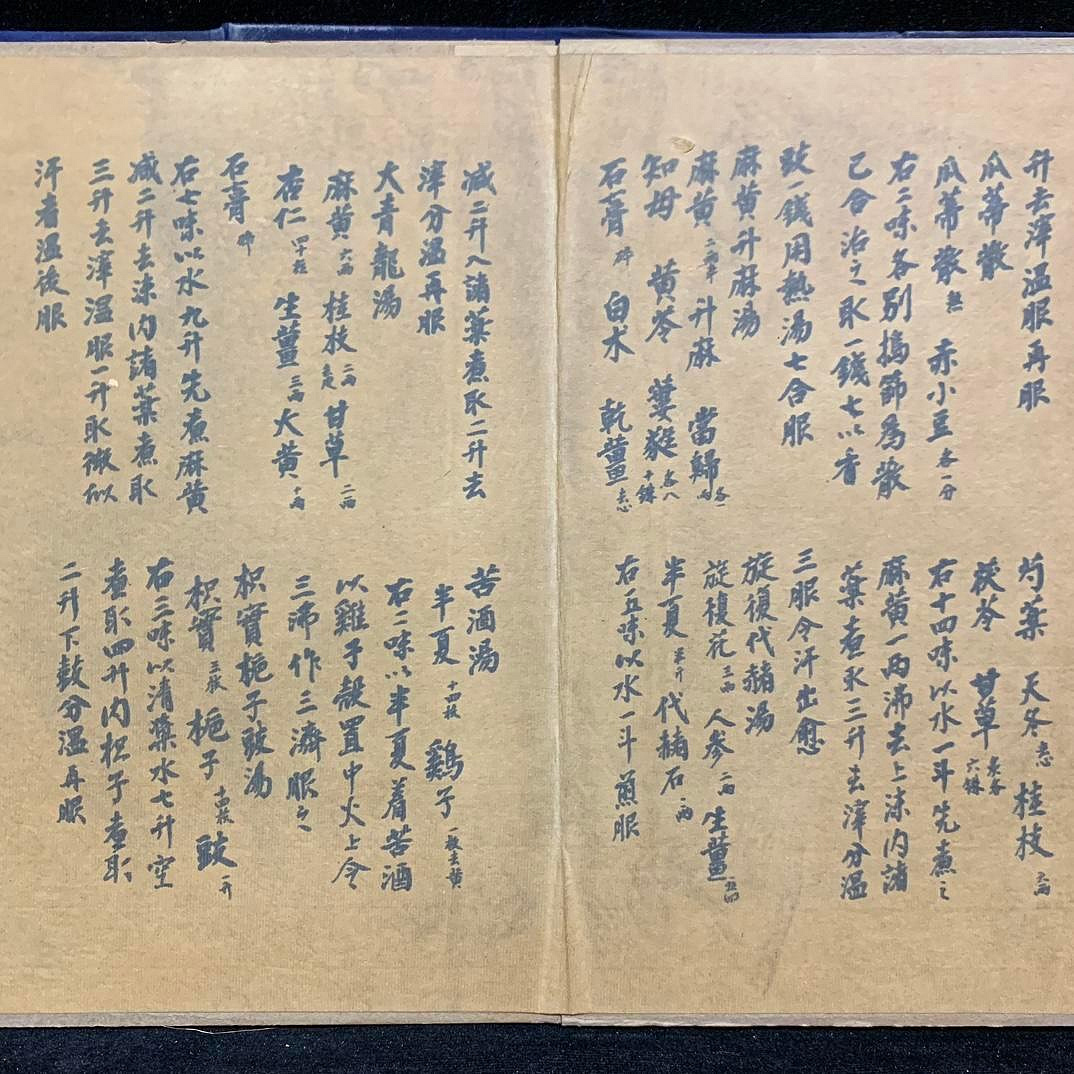 升去滓溫服再服
瓜蒂散
瓜蒂散熬 赤小豆各一分
右二味各別搗篩為散
已合治之取一錢匕以香
豉一錢用熱湯七合服
麻黃升麻湯
麻黃二両半 升麻 當歸各一両
知母 黃芩 萎蕤各八十銖
石膏碎 白术 乾薑去心
芍藥 天冬去心 桂枝
茯苓 甘草炙各六銖
右十四味以水一斗先煮之
麻黃一兩沸去上沫內諸
藥煮取三升去滓分溫
三服令汗出愈
旋復代赭湯
旋復花三両 人参二両 生薑
半夏半升 代赭石一両
右五味以水一斗煎服
減二升入諸藥煮取二升去
滓分溫再服
大青龍湯
麻黃六両 桂枝二両 甘草二両
杏仁四十粒 生薑三両 大黃十両
石膏碎
右七味以水九升先煮麻黃
减二升去沫內諸藥煮取
三升去滓溫服一升取微似
汗者溫後服
苦酒湯
半夏十四枚 鷄子一枚去黃
右二味以半夏着苦酒
以雞子殼置中火上令
三沸作三濟服之
枳實梔子豉湯
枳實三枚 梔子十四枚 豉一升
右三味以清藥水七升空
煮取四升內枳子煮取
二升下豉分溫再服